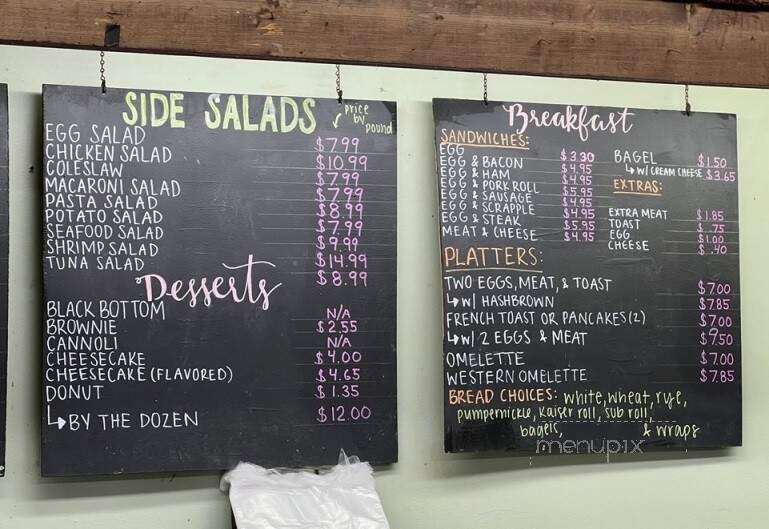 SIDE SALADS
price by pound
EGG SALAD $7.99
CHICKEN SALAD $10.99
COLESLAW $7.99
MACARONI SALAD $7.99
PASTA SALAD $8.99
POTATO SALAD $7.99
SEAFOOD SALAD $9.99
SHRIMP SALAD $14.99
TUNA SALAD $8.99
Desserts
BLACK BOTTOM N/A
BROWNIE $2.55
CANNOLI N/A
CHEESECAKE $4.00
CHEESECAKE (FLAVORED) $4.65
DONUT $1.35
↳BY THE DOZEN $12.00
Breakfast
SANDWICHES:
EGG $3.30
EGG & BACON $4.95
EGG & HAM $4.95
EGG & PORK ROLL $5.95
EGG & SAUSAGE $4.95
EGG & SCRAPPLE $4.95
EGG & STEAK $5.95
MEAT & CHEESE $4.95
BAGEL $1.50
↳W/ CREAM CHEESE $3.65
EXTRAS:
EXTRA MEAT $1.85
TOAST $.75
EGG $1.00
CHEESE $.40
PLATTERS:
TWO EGGS, MEAT, & TOAST $7.00
↳W/ HASHBROWN $7.85
FRENCH TOAST OR PANCAKES (2) $7.00
↳W/ 2 EGGS & MEAT $9.50
OMELETTE $7.00
WESTERN OMELETTE $7.85
BREAD CHOICES: white, wheat, rye,
pumpernickle, kaiser roll, sub roll,
bagels, & wraps
menupix